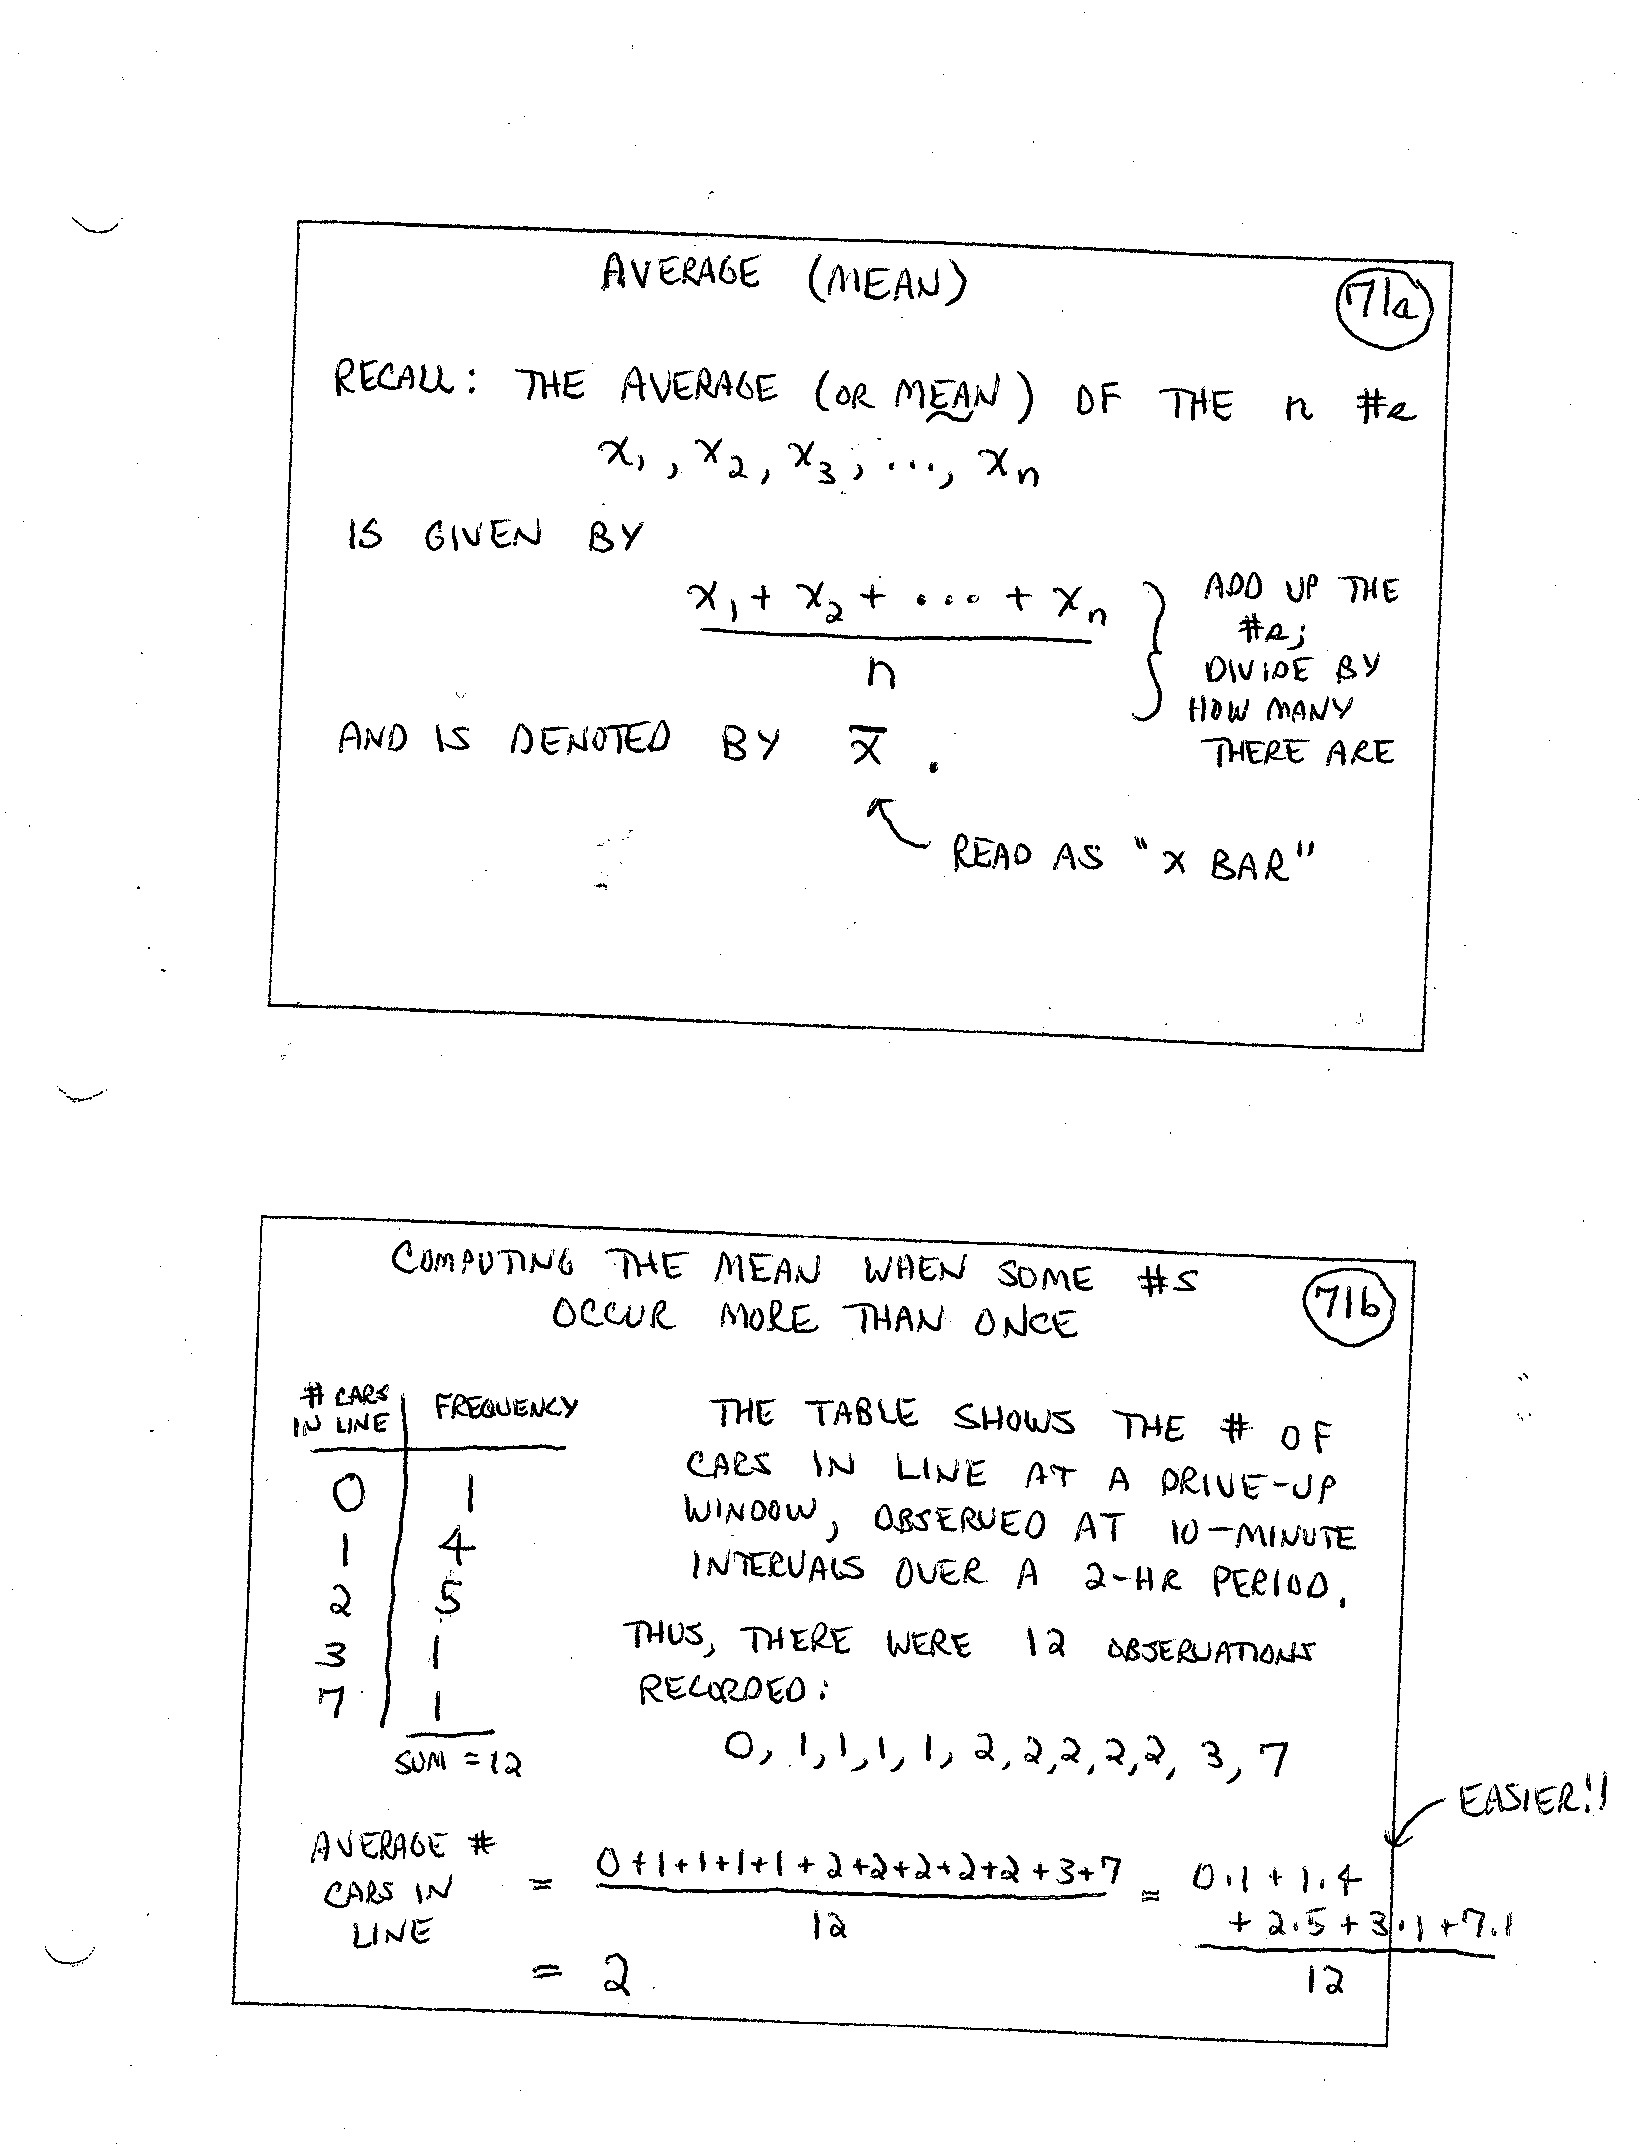 AVERAGE (MEAN)
71a
RECALL: THE AVERAGE (OR MEAN) OF THE n #s
x₁, x₂, x₃, ..., xₙ
IS GIVEN BY
x₁ + x₂ + ... + xₙ
n
ADD UP THE
#s;
DIVIDE BY
HOW MANY
THERE ARE
AND IS DENOTED BY x̄.
READ AS "X BAR"
COMPUTING THE MEAN WHEN SOME #S
OCCUR MORE THAN ONCE
71b
# CARS IN LINE | FREQUENCY
0 | 1
1 | 4
2 | 5
3 | 1
7 | 1
SUM = 12
THE TABLE SHOWS THE # OF
CARS IN LINE AT A DRIVE-UP
WINDOW, OBSERVED AT 10-MINUTE
INTERVALS OVER A 2-HR PERIOD.
THUS, THERE WERE 12 OBSERVATIONS
RECORDED:
0, 1, 1, 1, 1, 2, 2, 2, 2, 2, 3, 7
EASIER!!
AVERAGE #
CARS IN
LINE
= 0+1+1+1+1+2+2+2+2+2+3+7
12
= 0·1 + 1·4
+ 2·5 + 3·1 + 7·1
12
= 2